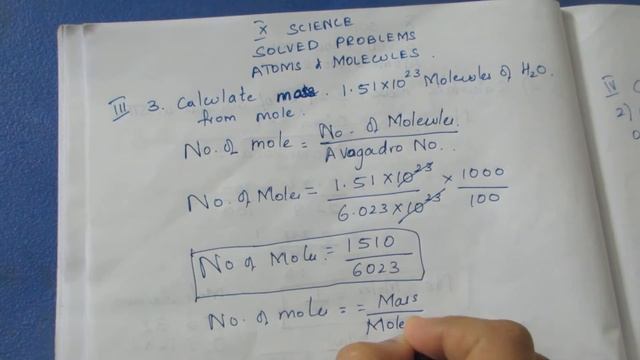 X SCIENCE
SOLVED PROBLEMS
ATOMS & MOLECULES.
III 3. Calculate mass. 1.51×10²³ Molecules of H₂O.
from mole.
No. of mole = No. of Molecules / Avagadro No..
No. of Moles = 1.51×10²³ / 6.023×10²³ × 1000 / 100
No of Moles = 1510 / 6023
No. of mole = = Mass / Mole
IV
2)